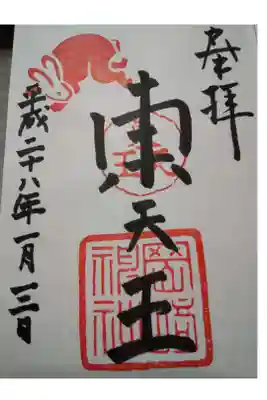 奉拝
東天王
岡﨑神社
平成二十八年一月三日